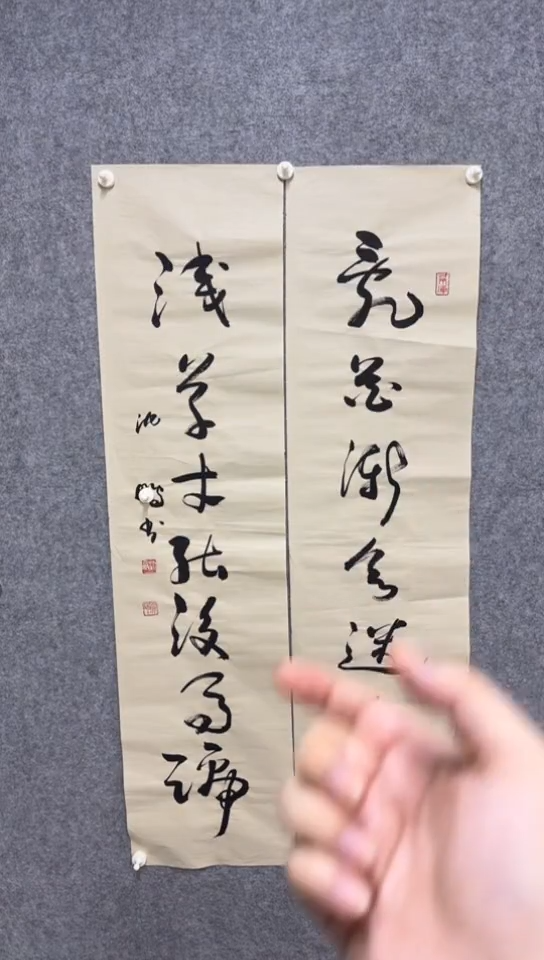 亂花漸欲迷
淺草才能沒馬蹄
沈鵬书